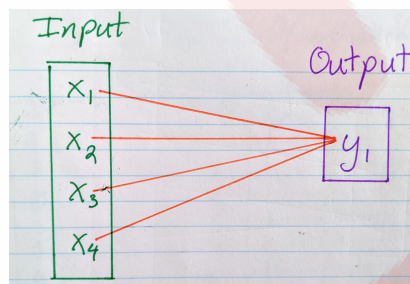 Input
Output
x₁
x₂
y₁
x₃
x₄